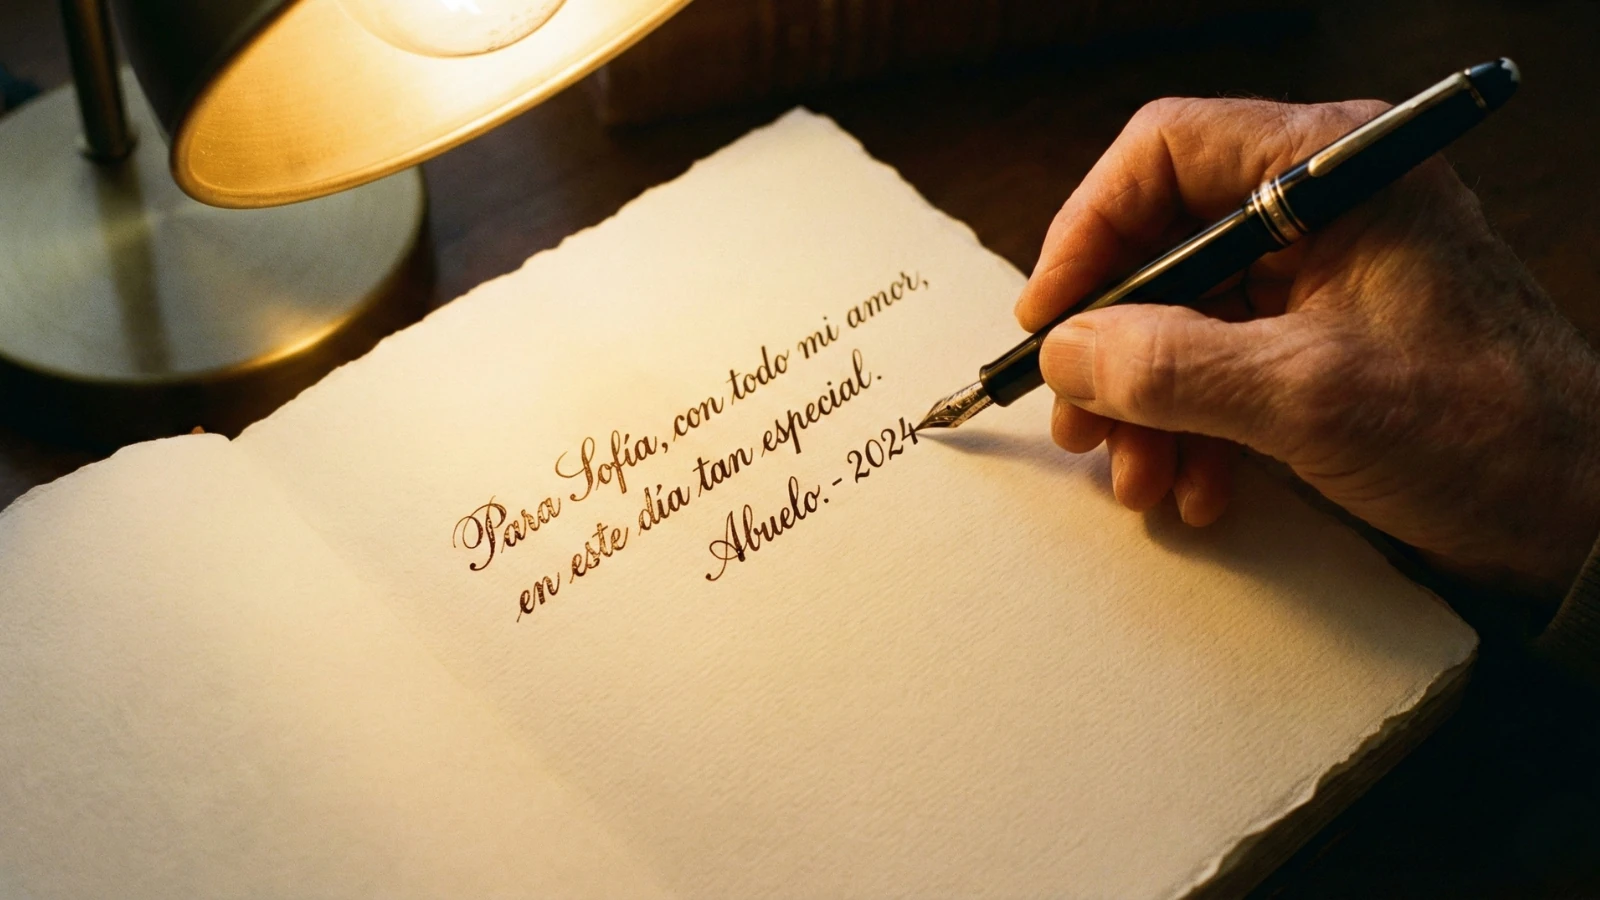 Para Sofía, con todo mi amor,
en este día tan especial.
Abuelo.- 2024